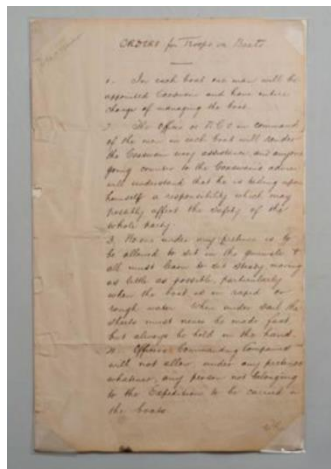 ORDERS for Troops in Boats
1. In each boat one man will be
appointed Coxswain and have entire
charge of managing the boat.
2. The Officer or N.C.O in command
of the men in each boat will render
the Coxswain every assistance, and anyone
going counter to the Coxswain's advice
will understand that he is taking upon
himself a responsibility which may
possibly affect the safety of the
whole party.
3. No one under any pretence is to
be allowed to sit on the gunwale &
all must learn to sit steady, moving
as little as possible, particularly
when the boat is in rapid or
rough water. When under sail the
sheets must never be made fast,
but always be held in the hand.
4. Officers Commanding Companies
will not allow under any pretence
whatever, any person not belonging
to the Expedition to be carried in
the boats.